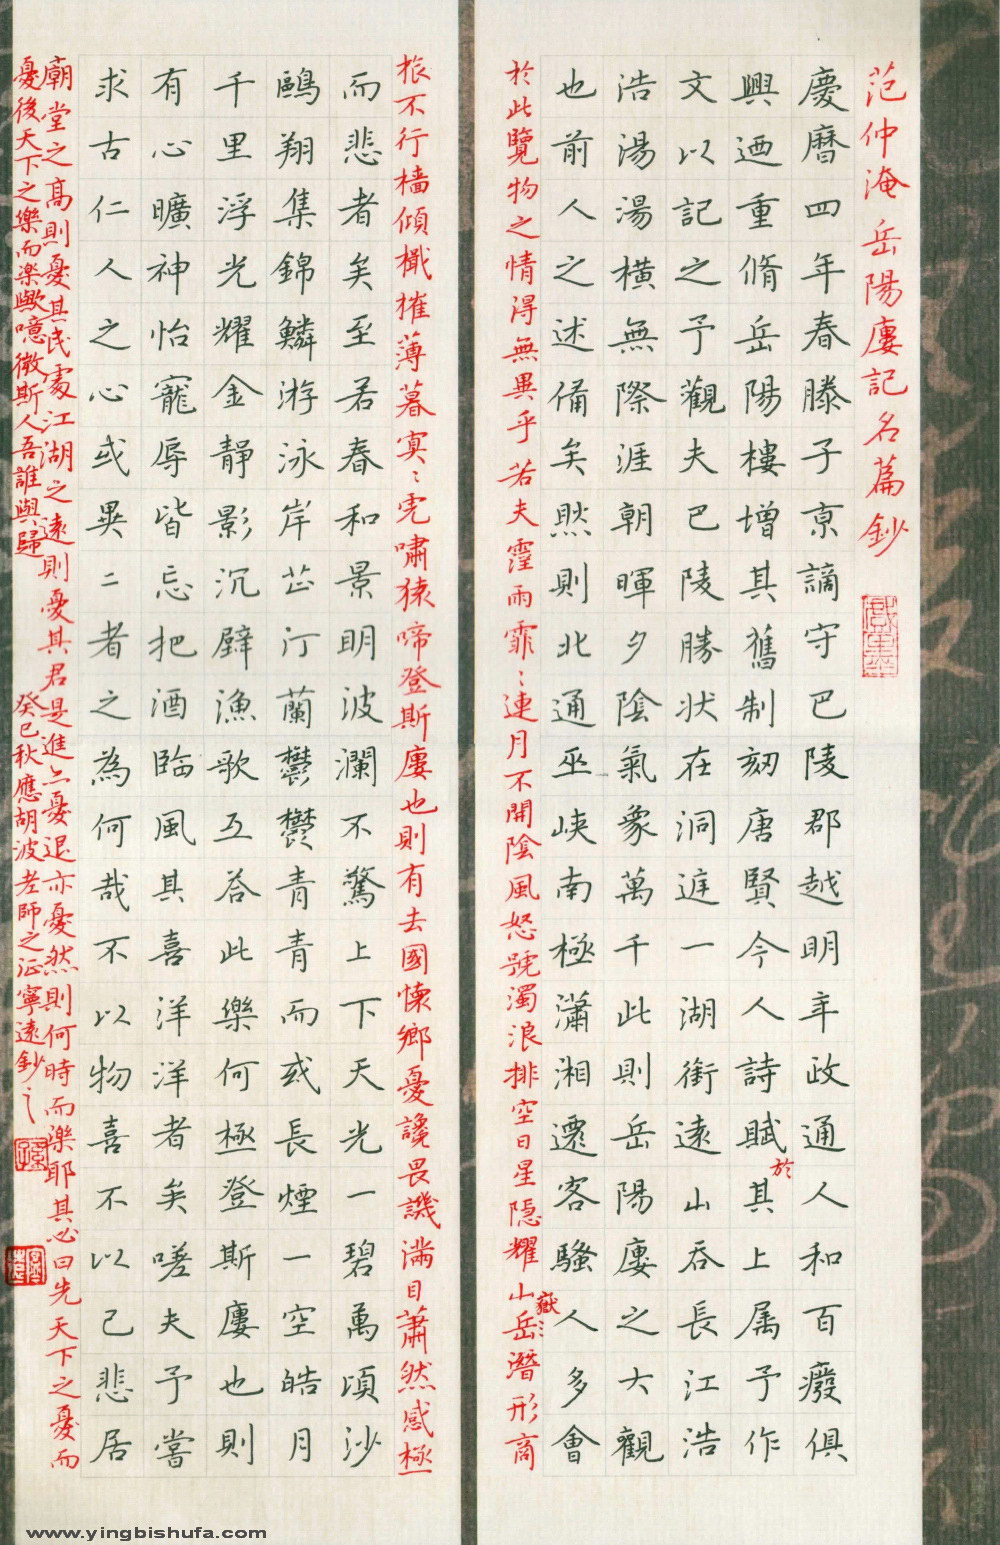 范仲淹岳陽廔記名篇鈔
慶曆四年春滕子京謫守巴陵郡越明年政通人和百癈俱
興迺重脩岳陽樓增其舊制刻唐賢今人詩賦於其上属予作
文以記之予觀夫巴陵勝状在洞庭一湖銜遠山吞長江浩
浩湯湯橫無際涯朝暉夕陰氣象萬千此則岳陽廔之大觀
也前人之述俻矣然則北通巫峡南極瀟湘遷客騷人多會
於此覽物之情得無異乎若夫霪雨霏〻連月不開陰風怒號濁浪排空日星隱耀山岳潛形商
嶽〻
旅不行檣傾檝摧薄暮冥〻虎嘯猿啼登斯廔也則有去國懐鄉憂讒畏譏滿目蕭然感極
而悲者矣至若春和景明波瀾不驚上下天光一碧萬頃沙
鷗翔集錦鱗游泳岸芷汀蘭欝欝青青而或長煙一空皓月
千里浮光耀金靜影沉璧漁歌互荅此樂何極登斯廔也則
有心曠神怡寵辱皆忘把酒臨風其喜洋洋者矣嗟夫予嘗
求古仁人之心或異二者之為何哉不以物喜不以己悲居
廟堂之高則憂其民處江湖之遠則憂其君是進亦憂退亦憂然則何時而樂耶其必曰先天下之憂而
憂後天下之樂而樂歟噫微斯人吾誰與歸
癸巳秋應胡波老師之征寧遠鈔之
www.yingbishufa.com